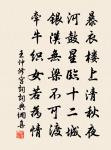 暴衣楼上清秋夜
河鼓星临十二城
银汉无梁不可渡
牵牛织女若为情
王仲修宫词词典网集